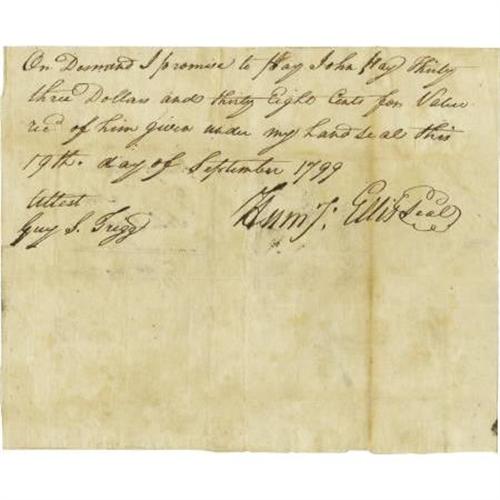 On Demand I promise to Pay John Hay Thirty
three Dollars and thirty Eight Cents for Value
recd of him given under my hand seal this
19th. day of September 1799
Attest
Guy S. Trigg
Humy: Ellis Seal